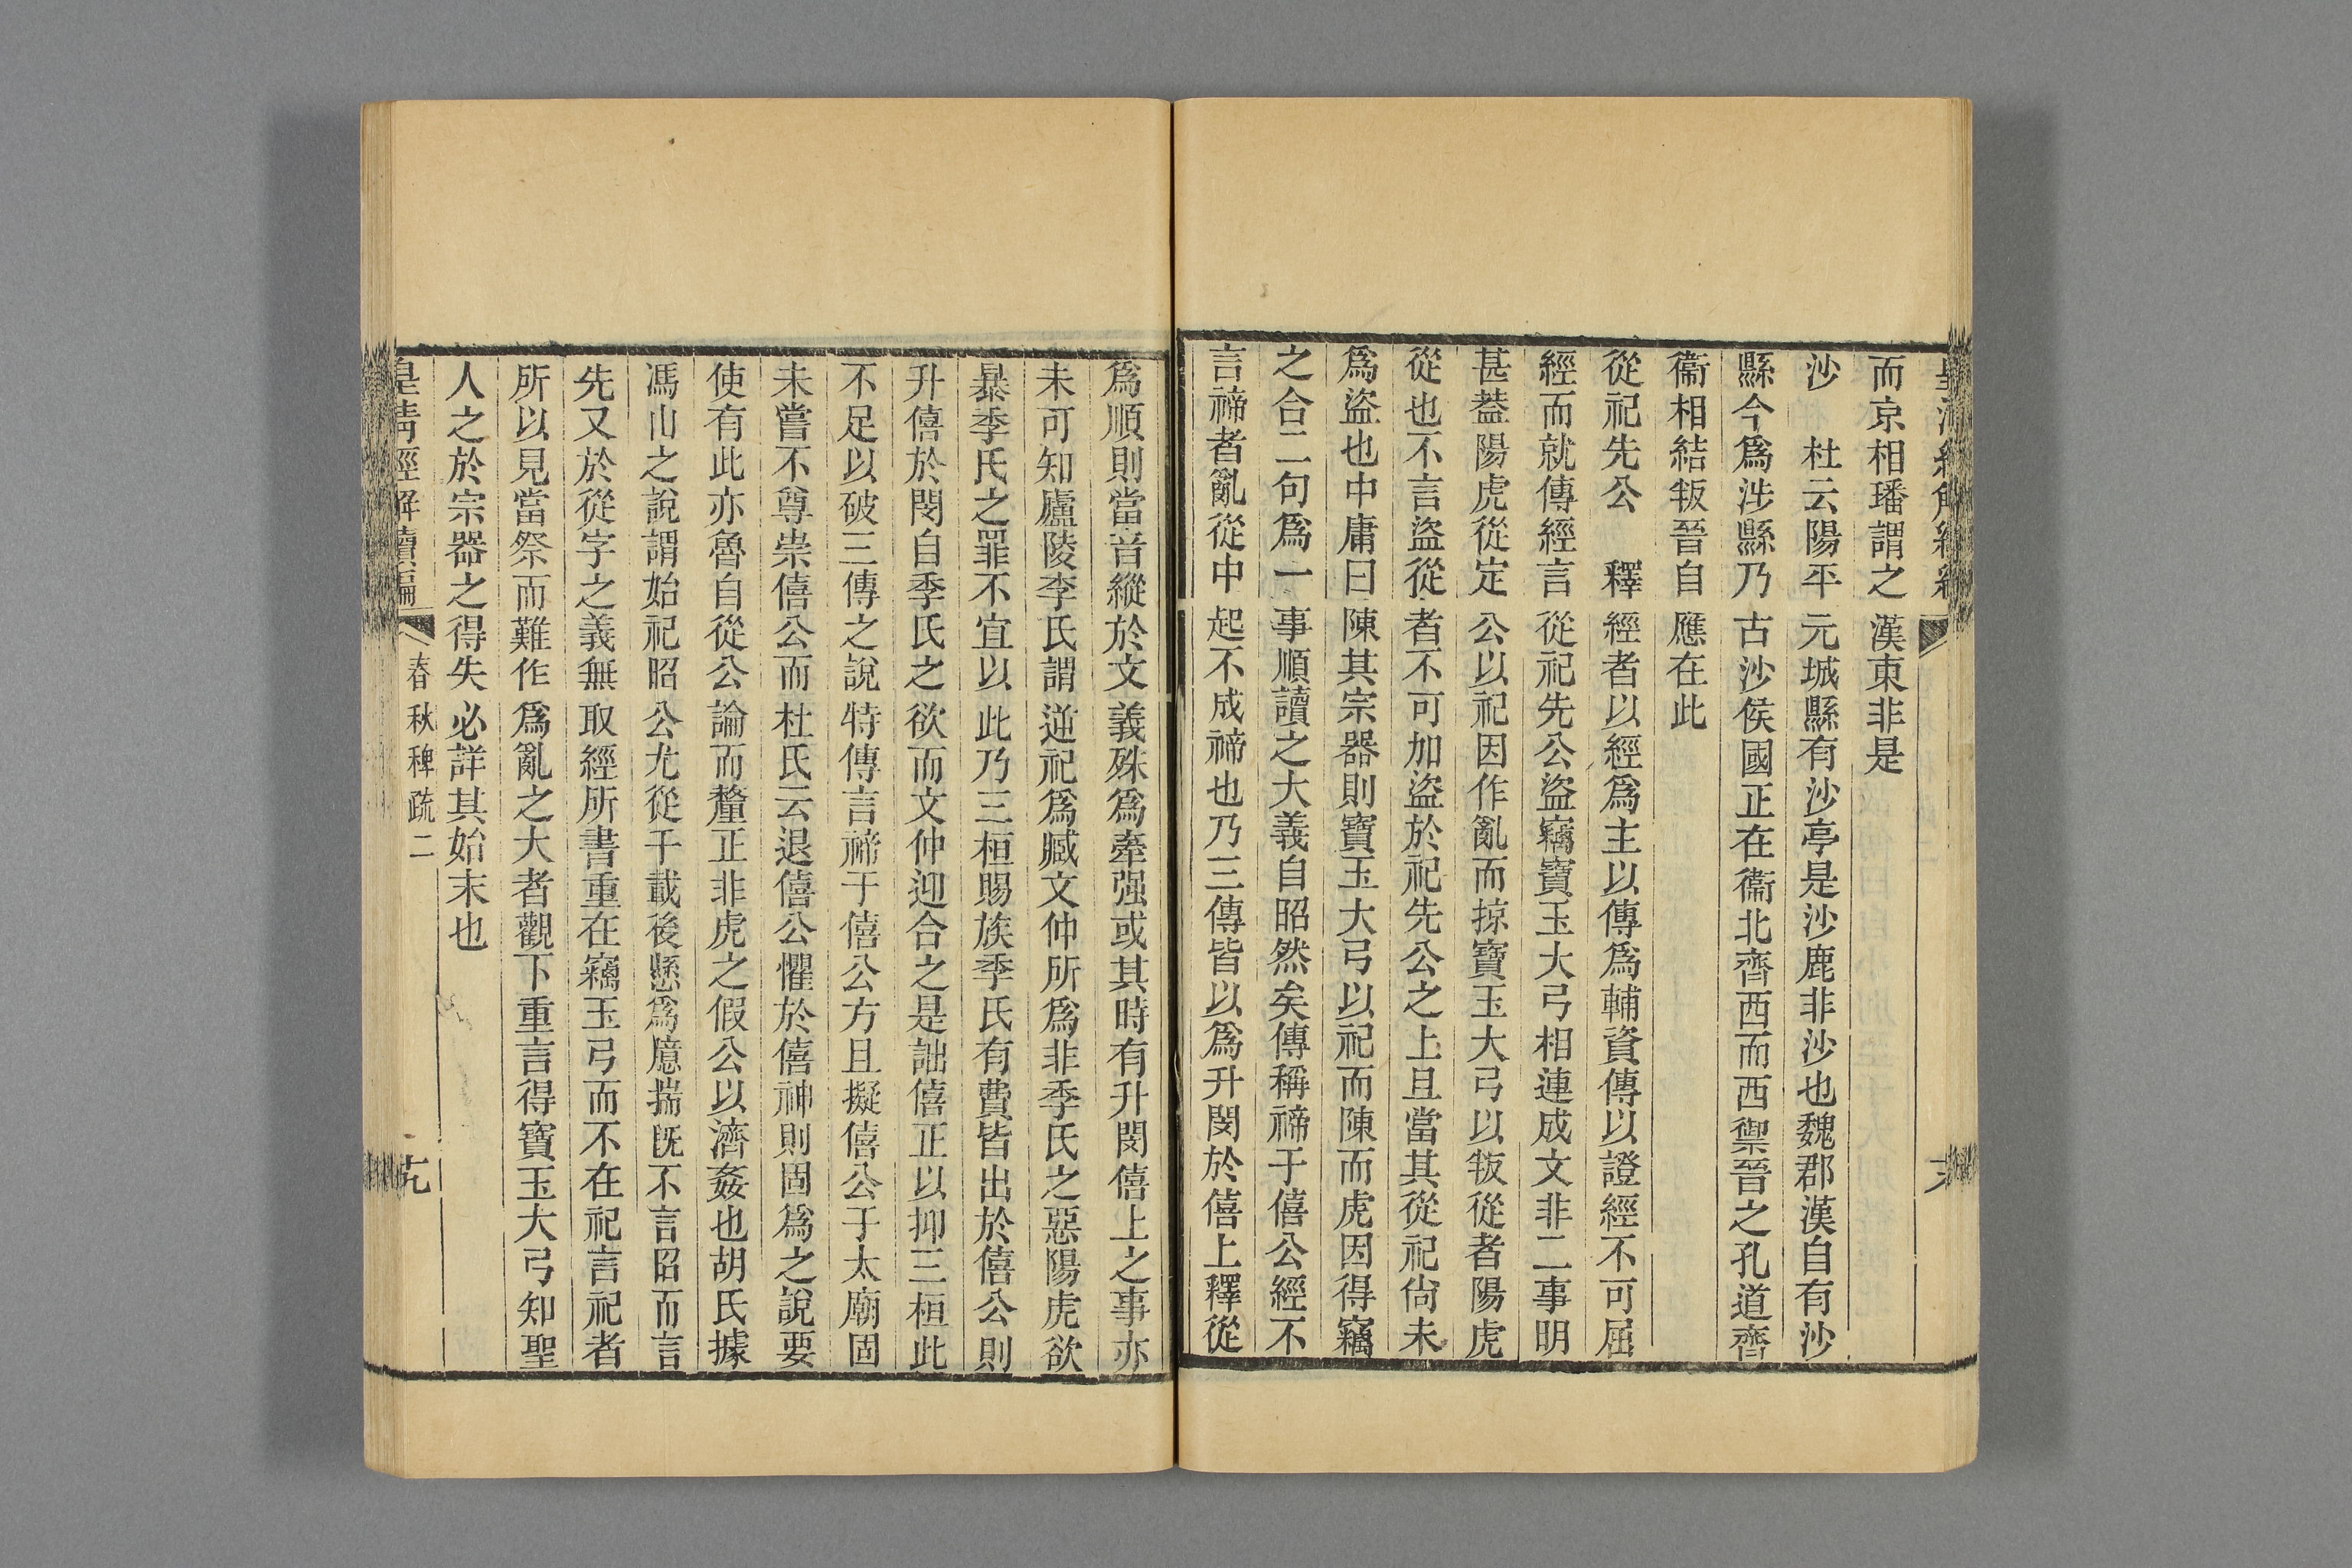 而京相璠謂之漢東非是
沙　杜云陽平元城縣有沙亭是沙鹿非沙也魏郡漢自有沙
縣今爲涉縣乃古沙侯國正在衞北齊西而西禦晉之孔道齊
衞相結叛晉自應在此
從祀先公　釋經者以經爲主以傳爲輔資傳以證經不可屈
經而就傳經言從祀先公盜竊寶玉大弓相連成文非二事明
甚葢陽虎從定公以祀因作亂而掠寶玉大弓以叛從者陽虎
從也不言盜從者不可加盜於祀先公之上且當其從祀尙未
爲盜也中庸曰陳其宗器則寶玉大弓以祀而陳而虎因得竊
之合二句爲一事順讀之大義自昭然矣傳稱禘于僖公經不
言禘者亂從中起不成禘也乃三傳皆以爲升閔於僖上釋從
爲順則當音縱於文義殊爲牽强或其時有升閔僖上之事亦
未可知廬陵李氏謂逆祀爲臧文仲所爲非季氏之惡陽虎欲
暴季氏之罪不宜以此乃三桓賜族季氏有費皆出於僖公則
升僖於閔自季氏之欲而文仲迎合之是詘僖正以抑三桓此
不足以破三傳之說特傳言禘于僖公方且擬僖公于太廟固
未嘗不尊崇僖公而杜氏云退僖公懼於僖神則固爲之說要
使有此亦魯自從公論而釐正非虎之假公以濟姦也胡氏據
馮山之說謂始祀昭公尤從千載後懸爲臆揣旣不言昭而言
先又於從字之義無取經所書重在竊玉弓而不在祀言祀者
所以見當祭而難作爲亂之大者觀下重言得寶玉大弓知聖
人之於宗器之得失必詳其始末也
皇淸經解續編　春秋稗疏二